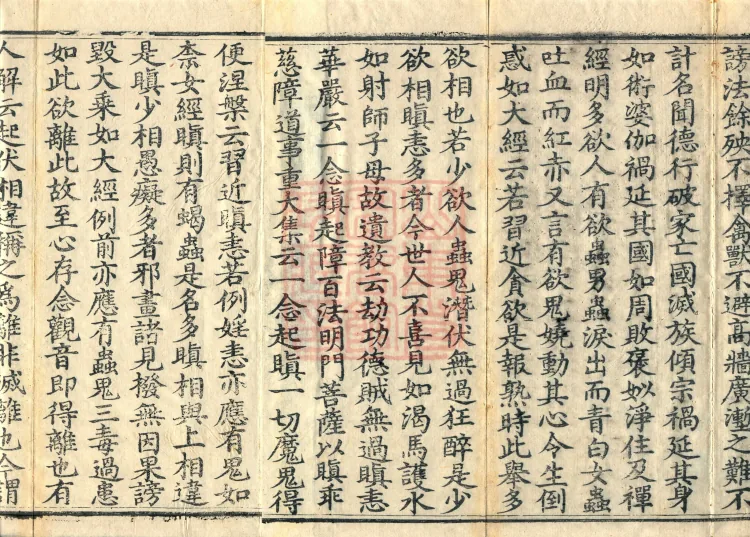 謗法餘殃不擇禽獸不避高牆廣塹之難不
計名聞德行破家亡國滅族傾宗禍延其身
如術婆伽禍延其國如周敗褒姒淨住及禪
經明多欲人有欲蟲男蟲淚出而青白女蟲
吐血而紅赤又言有欲鬼嬈動其心令生倒
惑如大經云若習近貪欲是報熟時此舉多
欲相也若少欲人蟲鬼潛伏無過狂醉是少
欲相瞋恚多者今世人不喜見如渴馬護水
如射師子母故遺教云劫功德賊無過瞋恚
華嚴云一念瞋起障百法明門菩薩以瞋乖
慈障道事重大集云一念起瞋一切魔鬼得
便涅槃云習近瞋恚若例婬恚亦應有鬼如
柰女經瞋則有蝎蟲是名多瞋相與上相違
是瞋少相愚癡多者邪畫諸見撥無因果謗
毀大乘如大經例前亦應有蟲鬼三毒過患
如此欲離此故至心存念觀音即得離也有
人解云起伏相違禰之為離非滅離也今謂